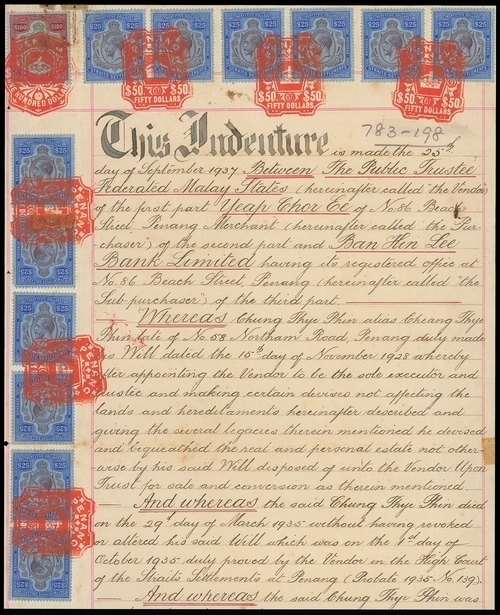 $100 $25 $25 $25 $25 $25 $25
STRAITS SETTLEMENTS
HUNDRED DOLLARS
$50 $50 $50 $50 $50 $50
FIFTY DOLLARS FIFTY DOLLARS FIFTY DOLLARS
783-198
This Indenture is made the 25th
day of September 1937 Between The Public Trustee
Federated Malay States (hereinafter called "the Vendor")
of the first part Yeap Chor Ee of No. 86 Beach
Street, Penang Merchant (hereinafter called the "Pur-
chaser") of the second part and Ban Hin Lee
Bank Limited having its registered office at
No. 86 Beach Street, Penang (hereinafter called "the
Sub-purchaser") of the third part.
Whereas Chung Thye Phin alias Cheang Thye
Phin late of No. 58 Northam Road, Penang duly made
is Will dated the 15th day of November 1928 whereby
after appointing the Vendor to be the sole executor and
trustee and making certain devises not affecting the
lands and hereditaments hereinafter described and
giving the several legacies therein mentioned he devised
and bequeathed the real and personal estate not other-
wise by his said Will disposed of unto the Vendor Upon
Trust for sale and conversion as therein mentioned
And whereas the said Chung Thye Phin died
on the 29th day of March 1935 without having revoked
or altered his said Will which was on the 1st day of
October 1935 duly proved by the Vendor in the High Court
of the Straits Settlements at Penang (Probate 1935 No. 139).
And whereas the said Chung Thye Phin was
$25 $25
PENANG
$25 $25
$25 $25
PENANG
$25 $25
$25 $25
PENANG
$25 $25